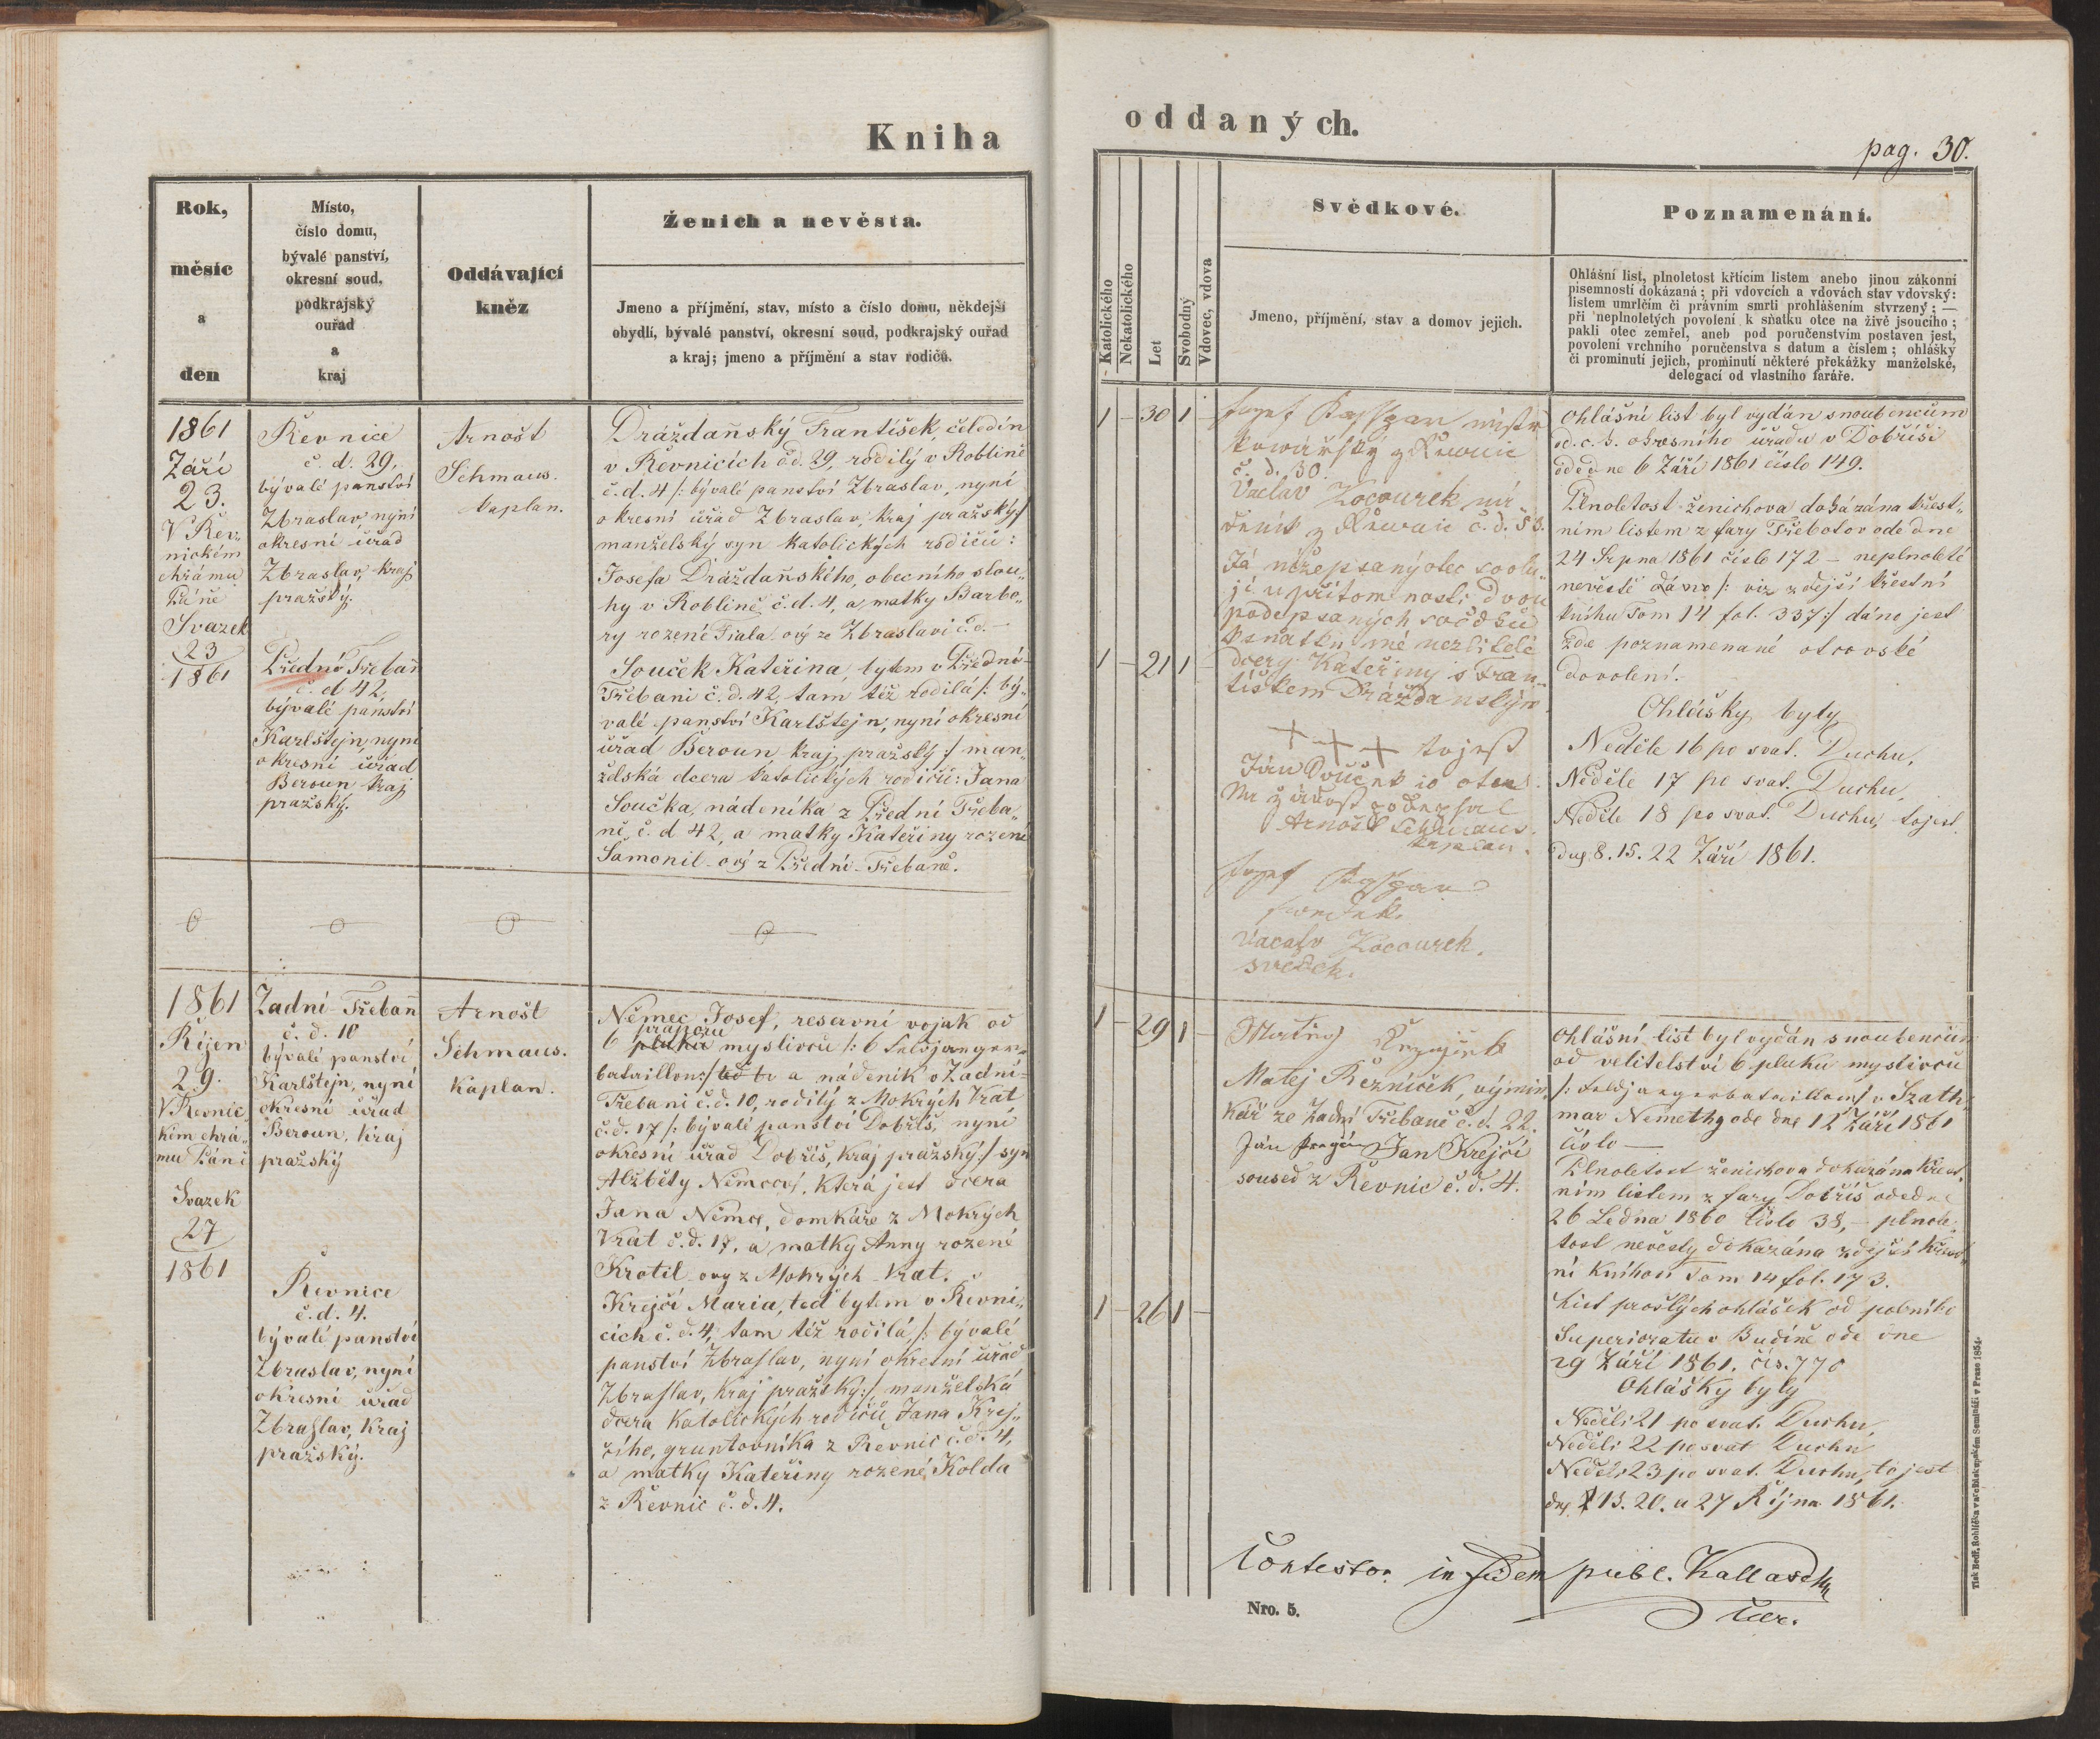 Kniha
Rok,
měsíc
a
den
Místo,
číslo domu,
bývalé panství,
okresní soud,
podkrajský
ouřad
a
kraj
Oddávající
kněz
Ženich a nevěsta.
Jmeno a příjmění, stav, místo a číslo domu, někdejší
obydlí, bývalé panství, okresní soud, podkrajský ouřad
a kraj; jmeno a příjmění a stav rodičů.
1861
Září
23.
V Řev„
nickém
chrámu
Páně
Svazek
23
1861
Řevnice
č. d. 29,
bývalé panství
Zbraslav, nyní
okresní úřad
Zbraslav, kraj
pražský.
Přední Třebaň
č. d 42,
bývalé panství
Karlštejn, nyní
okresní úřad
Beroun, kraj
pražský.
Arnošt
Schmaus.
kaplan.
Dráždaňský František, čeledín
v Řevnicích č.d. 29, rodilý v Roblíně
č. d. 4 /: bývalé panství Zbraslav, nyní
okresní úřad Zbraslav, kraj pražský:/
manželský syn katolických rodičů:
Josefa Dráždaňského, obecního slou„
hy v Roblíně č. d. 4, a matky Barbo„
ry rozené Fiala ový ze Zbraslavi č.d. —
Souček Kateřina, bytem v Přední-
Třebani č. d. 42, tam též rodilá /: bý„
valé panství Karlštejn, nyní okresní
úřad Beroun, kraj pražský:/ man„
želská dcera katolických rodičů: Jana
Součka, nádeníka z Přední Třeba„
ně, č. d 42, a matky Kateřiny rozené
Šamonil-ový z Přední-Třebaně.
1861
Říjen
29.
V Řevnic
kém chrá„
mu Páně
Svazek
27
1861
Zadní Třebaň
č. d. 10
bývalé panství
Karlštejn, nyní
okresní úřad
Beroun, kraj
pražský
Řevnice
č. d. 4.
bývalé panství
Zbraslav, nyní
okresní úřad
Zbraslav, kraj
pražský.
Arnošt
Schmaus.
kaplan.
Němec Josef, reservní voják od
praporu
6 pluku myslivců /: 6 Feldjaeger„
bataillon:/ a nádeník v Zadní-
Třebani č. d. 10, rodilý z Mokrých Vrat
č. d. 17 /: bývalé panství Dobříš, nyní
okresní úřad Dobříš, kraj pražský:/ syn
Alžběty Němcový, která jest dcera
Jana Němce, domkáře z Mokrých
Vrat č. d. 17, a matky Anny rozené
Krotil-ovy z Mokrých-Vrat.
Krejčí Maria, teď bytem v Řevni„
cích č. d. 4, tam též rodilá, /: bývalé
panství Zbraslav, nyní okresní úřad
Zbraslav, kraj pražský:/ manželská
dcera katolických rodičů, Jana Krej„
čího, gruntovníka z Řevnic č. d. 4,
a matky Kateřiny rozené Kolda
z Řevnic č. d. 4.
oddaných.
pag. 30.
Katolického
Nekatolického
Let
Svobodný
Vdovec, vdova
Svědkové.
Jmeno, příjmění, stav a domov jejich.
Poznamenání.
Ohlášní list, plnoletost křtícím listem anebo jinou zákonní
písemností dokázaná; při vdovcích a vdovách stav vdovský:
listem umrlčím či právním smrti prohlášením stvrzený; —
při neplnoletých povolení k sňatku otce na živě jsoucího;
pakli otec zemřel, aneb pod poručenstvím postaven jest,
povolení vrchního poručenstva s datum a číslem; ohlášky
či prominutí jejich, prominutí některé překážky manželské,
delegací od vlastního faráře.
1 — 30 1 —
1 — 21 1 —
Josef Kasspar mistr
kowářský z Řewnic
č. d. 30.
Václav Kocourek mi
č. d. 53.
Já nížepsaný otec svolu„
ji u přítomnosti dvou
podepsaných svědků
k sňatku mé nezletilé
dcery Kateřiny s Fran„
tiškem Dráždanským.
+ + + tojest
Jan Souček co otec.
Na žádost podepsal
Arnošt Schmaus.
kaplan.
Josef Kasspar
swedek.
Vacalv Kocourek.
svědek.
Ohlášní list byl vydán snoubencům
od c. k. okresního úřadu v Dobříši
ode dne 6 Září 1861 číslo 149.
Plnoletost ženichova dokázána křest„
ním listem z fary Třebotov ode dne
24 Srpna 1861 číslo 172 — neplnoleté
nevěstě dáno /: viz zdejší křestní
knihu Tom 14 fol. 337:/ dáno jest
zde poznamenané otcovské
dovolení.
Ohlášky byly
Neděle 16 po svat. Duchu,
Neděle 17 po svat. Duchu,
Neděle 18 po svat. Duchu, tojest
dny 8. 15. 22 Září 1861.
1 — 29 1 —
1 — 26 1 —
Matěj Řezníček, výmin„
kář ze Zadní Třebaně č. d. 22.
Jan Krejčí
soused z Řevnic č. d. 4.
Ohlášní list byl vydán snoubencům
od velitelství 6 pluku myslivců
/: Feldjaegerbataillon:/ v Szath„
mar Nemethy ode dne 12 Září 1861
číslo —
Plnoletost ženichova dokázána křest„
ním listem z fary Dobříš ode dne
26 Ledna 1860 číslo 38, — plnole„
tost nevěsty dokazána zdejší křest„
ní knihou Tom 14 fol. 173.
List prošlých ohlášek od polního
Superioratu v Budíně ode dne
29 Září 1861. čis. 770
Ohlášky byly
Neděli 21 po svat. Duchu,
Neděli 22 po svat Duchu
Neděli 23 po svat. Duchu, tojest
dny 13. 20. a 27 Října 1861.
in fidem publ. Kallasch
Nro. 5.